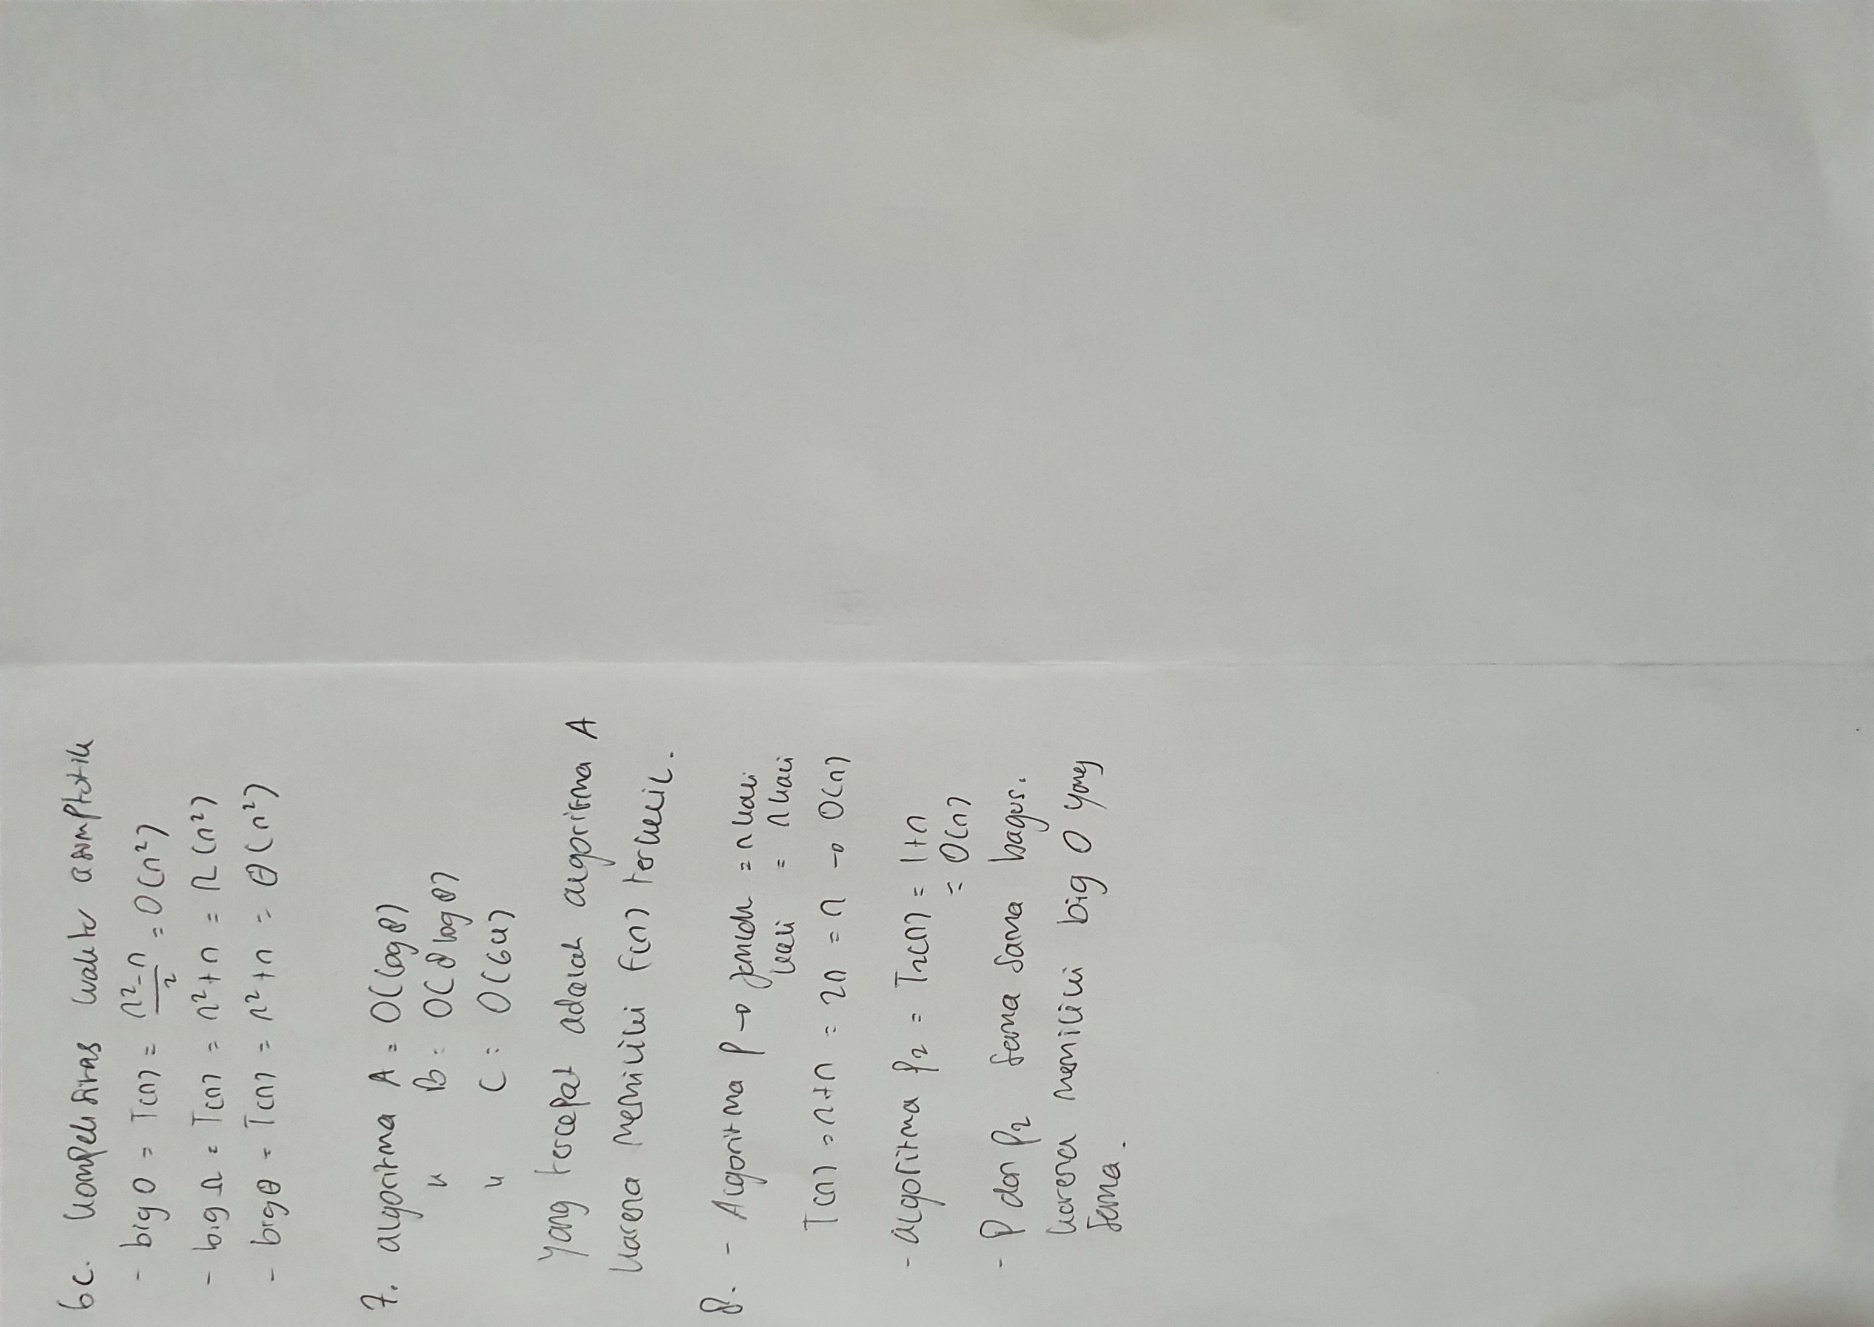 6c. Kompleksitas waktu asimptotik
- big O = T(n) = n²-n/2 = O(n²)
- big Ω = T(n) = n²+n = Ω(n²)
- big θ = T(n) = n²+n = θ(n²)
7. algoritma A = O(log 8)
" B : O(8 log 8)
" C : O(64)
Yang tercepat adalah algoritma A
karena memiliki f(n) terkecil.
8. - Algoritma P → jumlah = n kali
kali = n kali
T(n) = n+n = 2n = n → O(n)
- algoritma P2 = T2(n) = 1+n
= O(n)
- P dan P2 sama sama bagus.
karena memiliki big O yang
sama.